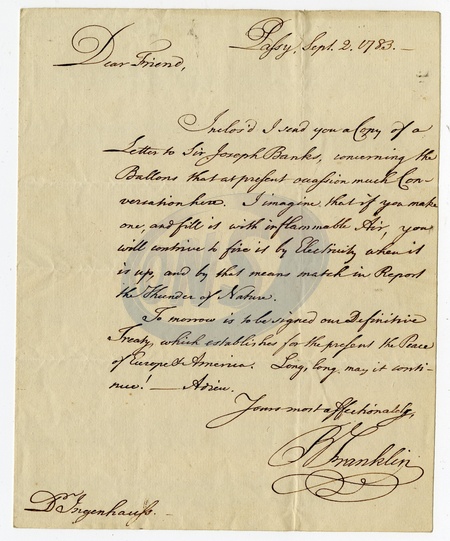 Passy, Sept. 2. 1783.—
Dear Friend,
Inclos'd I send you a Copy of a
Letter to Sir Joseph Banks, concerning the
Ballons that at present occasion much Con-
versation here. I imagine that if you make
one, and fill it with inflammable Air, you
will contrive to fire it by Electricity when it
is up, and by that means match in Report
the Thunder of Nature.
To morrow is to be signed our Definitive
Treaty, which establishes for the present the Peace
of Europe & America. Long, long may it conti-
nue! — Adieu.
Yours most affectionately,
B Franklin
Dr Ingenhauss.—